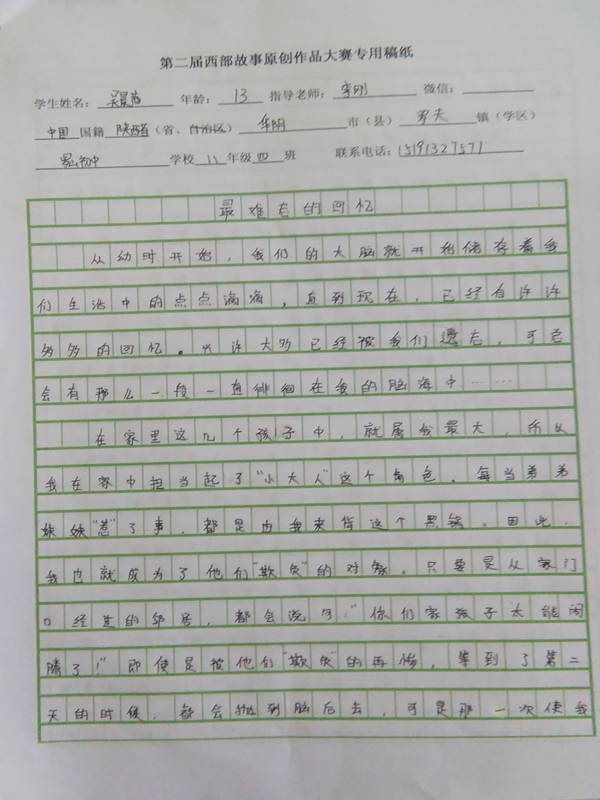 第二届西部故事原创作品大赛专用稿纸
学生姓名： 年龄： 13 指导老师： 李刚 微信：
中国 国籍 陕西省（省、自治区） 华阴 市（县） 罗夫 镇（学区）
初中 学校 八 年级 四 班 联系电话：15191327571
最难忘的回忆
从幼时开始，我们的大脑就开始储存着我
们生活中的点点滴滴，直到现在，已经有许许
多多的回忆。也许大多已经被我们遗忘，可总
会有那么一段一直徘徊在我的脑海中……
在家里这几个孩子中，就属我最大，所以
我在家中担当起了“小大人”这个角色。每当弟弟
妹妹“惹”了事，都是由我来背这个黑锅。因此，
我也就成为了他们“欺负”的对象。只要是从家门
口经过的邻居，都会说可：“你们家孩子太能闹
腾了！”即使是被他们“欺负”的再惨，等到了第二
天的时候，都会抛到脑后去，可是那一次使我